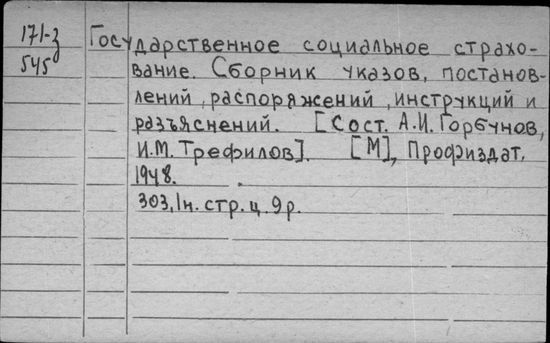 171-з
545
Государственное социальное страхо-
вание. Сборник указов, постанов-
лений, распоряжений, инструкций и
разъяснений. [Сост. А.И. Горбунов,
И.М. Трефилов]. [М], Профиздат,
1948.
303,1н. стр. ц. 9р.